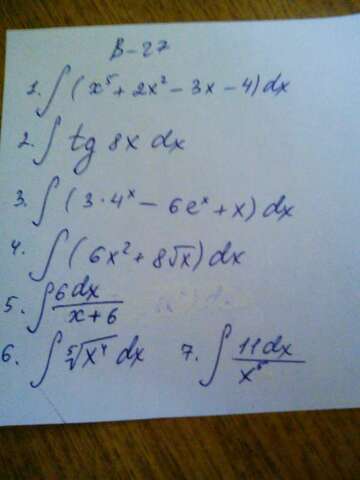 В-27
1. ∫ (x⁵ + 2x² − 3x − 4) dx
2. ∫ tg 8x dx
3. ∫ (3·4ˣ − 6eˣ + x) dx
4. ∫ (6x² + 8√x) dx
5. ∫ 6dx / x+6
6. ∫ ⁵√x⁴ dx 7. ∫ 11dx / x⁵